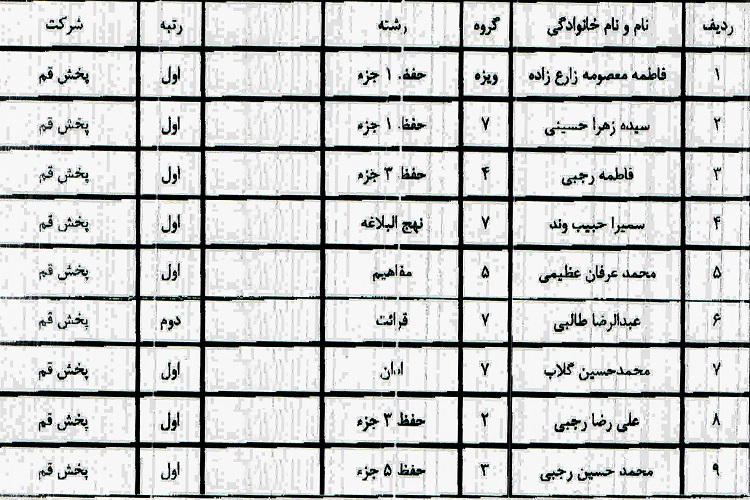 ردیف نام و نام خانوادگی گروه رشته رتبه شرکت
۱ فاطمه معصومه زارع زاده ویژه حفظ ۱ جزء اول پخش قم
۲ سیده زهرا حسینی ۷ حفظ ۱ جزء اول پخش قم
۳ فاطمه رجبی ۴ حفظ ۳ جزء اول پخش قم
۴ سمیرا حبیب وند ۷ نهج البلاغه اول پخش قم
۵ محمد عرفان عظیمی ۵ مفاهیم اول پخش قم
۶ عبدالرضا طالبی ۷ قرائت دوم پخش قم
۷ محمدحسین گلاب ۷ اذان اول پخش قم
۸ علی رضا رجبی ۲ حفظ ۳ جزء اول پخش قم
۹ محمد حسین رجبی ۳ حفظ ۵ جزء اول پخش قم